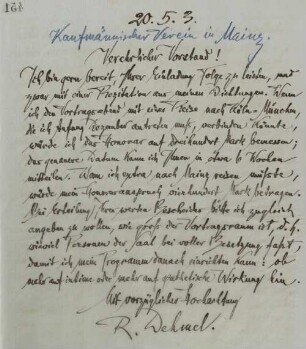 168
20.5.3.
Kaufmännischer Verein in Mainz.
Verehrlicher Vorstand!
Ich bin gern bereit, Ihrer Einladung Folge zu leisten, und
zwar mit einer Rezitation aus meinen Dichtungen. Wenn
ich den Vortragsabend mit einer Reise nach Köln-München,
die ich Anfang Dezember antreten muß, verbinden könnte,
würde ich das Honorar auf dreihundert Mark bemessen;
das genauere Datum kann ich Ihnen in etwa 6 Wochen
mitteilen. Wenn ich extra nach Mainz reisen müßte,
würde mein Honoraranspruch vierhundert Mark betragen.
Bei Erteilung Ihres werten Bescheides bitte ich zugleich
angeben zu wollen, wie groß der Vortragsraum ist, d. h.
wieviel Personen der Saal bei voller Besetzung faßt,
damit ich mein Programm danach einrichten kann: ob
mehr auf intime oder mehr auf pathetische Wirkung hin.
Mit vorzüglicher Hochachtung
R. Dehmel.